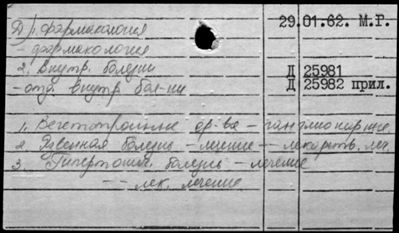 Д) 1. фармакология 29.01.62. М.Г.
- фармакология
2. Внутр. болезни Д 25981
- отд. внутр. бол-ни Д 25982 прил.
1. Вегетотропные ср-ва - ганглионарные
2. Язвенная болезнь - лечение - лекарств. леч.
3. Гипертонич. болезнь - лечение
- - лек. лечение